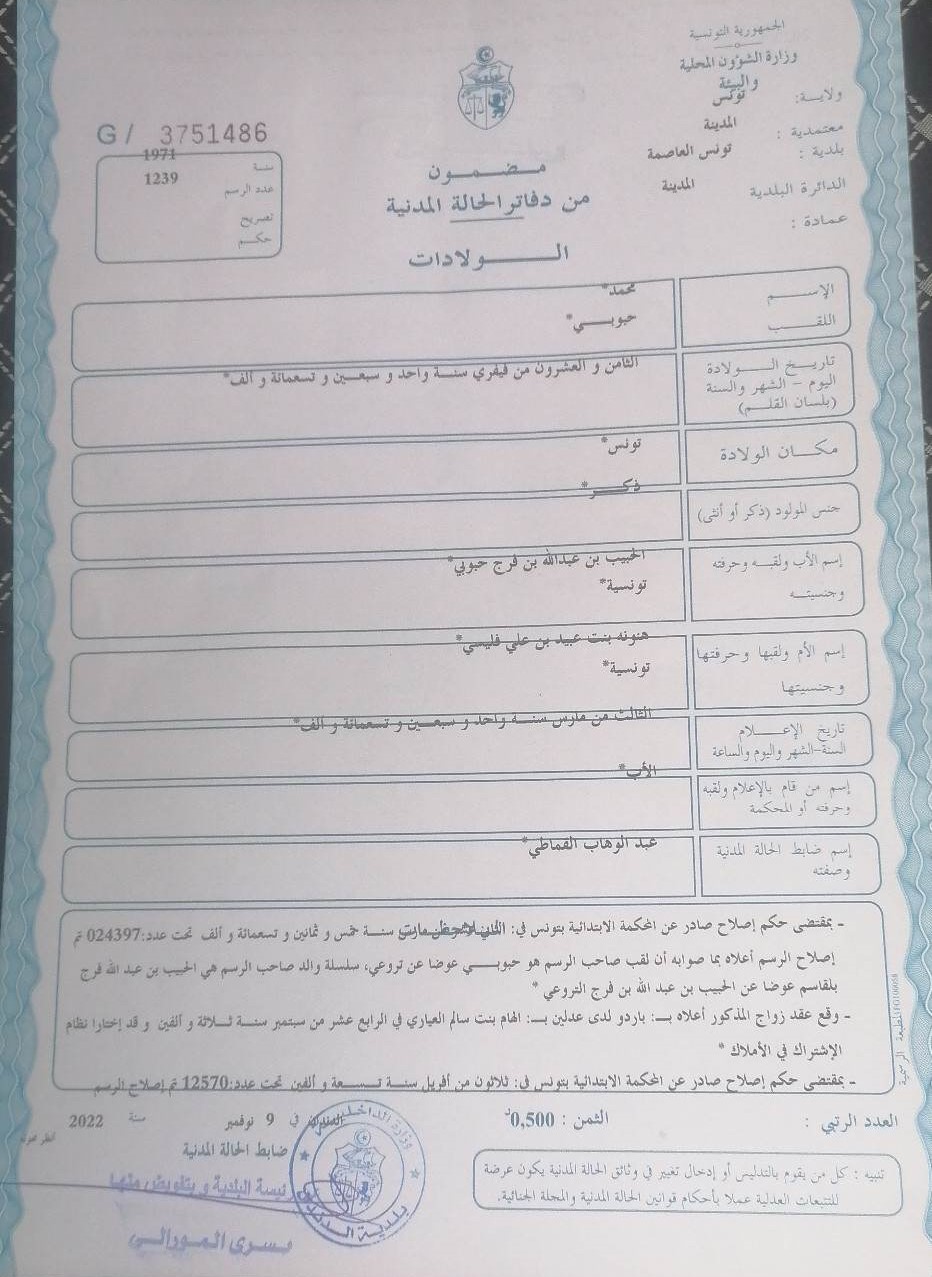 الجمهورية التونسية
وزارة الشؤون المحلية
والبيئة
ولاية: تونس
معتمدية : المدينة
بلدية : تونس العاصمة
الدائرة البلدية المدينة
عمادة :
G/ 3751486
سنة 1971
عدد الرسم 1239
تصريح
حكم
مضمون
من دفاتر الحالة المدنية
الولادات
الإسم محمد*
اللقب حبوبي*
تاريخ الولادة
اليوم - الشهر والسنة
(بلسان القلم)
الثامن و العشرون من فيفري سنة واحد و سبعين و تسعمائة و ألف*
مكان الولادة تونس*
جنس المولود (ذكر أو أنثى) ذكر*
إسم الأب ولقبه وحرفته
وجنسيته
الحبيب بن عبدالله بن فرج حبوبي*
تونسية*
إسم الأم ولقبها وحرفتها
وجنسيتها
هنونه بنت عبيد بن علي فليسي*
تونسية*
تاريخ الإعلام
السنة-الشهر واليوم والساعة
الثالث من مارس سنة واحد و سبعين و تسعمائة و ألف*
إسم من قام بالإعلام ولقبه
وحرفته أو المحكمة
الأب*
إسم ضابط الحالة المدنية
وصفته
عبد الوهاب القماطي*
- بمقتضى حكم إصلاح صادر عن المحكمة الابتدائية بتونس في: سنة خمس و ثمانين و تسعمائة و ألف تحت عدد:024397 تم
إصلاح الرسم أعلاه بما صوابه أن لقب صاحب الرسم هو حبوبي عوضا عن تروعي، سلسلة والد صاحب الرسم هي الحبيب بن عبد الله فرج
بلقاسم عوضا عن الحبيب بن عبد الله بن فرج التروعي *
- وقع عقد زواج المذكور أعلاه بـ: باردو لدى عدلين بـ: الهام بنت سالم العياري في الرابع عشر من سبتمبر سنة ثلاثة و ألفين و قد إختارا نظام
الإشتراك في الأملاك *
- بمقتضى حكم إصلاح صادر عن المحكمة الابتدائية بتونس في: ثلاثون من أفريل سنة تسعة و ألفين تحت عدد:12570 تم إصلاح الرسم
العدد الرتبي :
الثمن : 0,500د
في 9 نوفمبر سنة 2022
ضابط الحالة المدنية
تنبيه : كل من يقوم بالتدليس أو إدخال تغيير في وثائق الحالة المدنية يكون عرضة
للتتبعات العدلية عملا بأحكام قوانين الحالة المدنية والمجلة الجنائية.
وزارة الداخلية
رئيسة البلدية و بتفويض منها
يسرى
المطبعة الرسمية